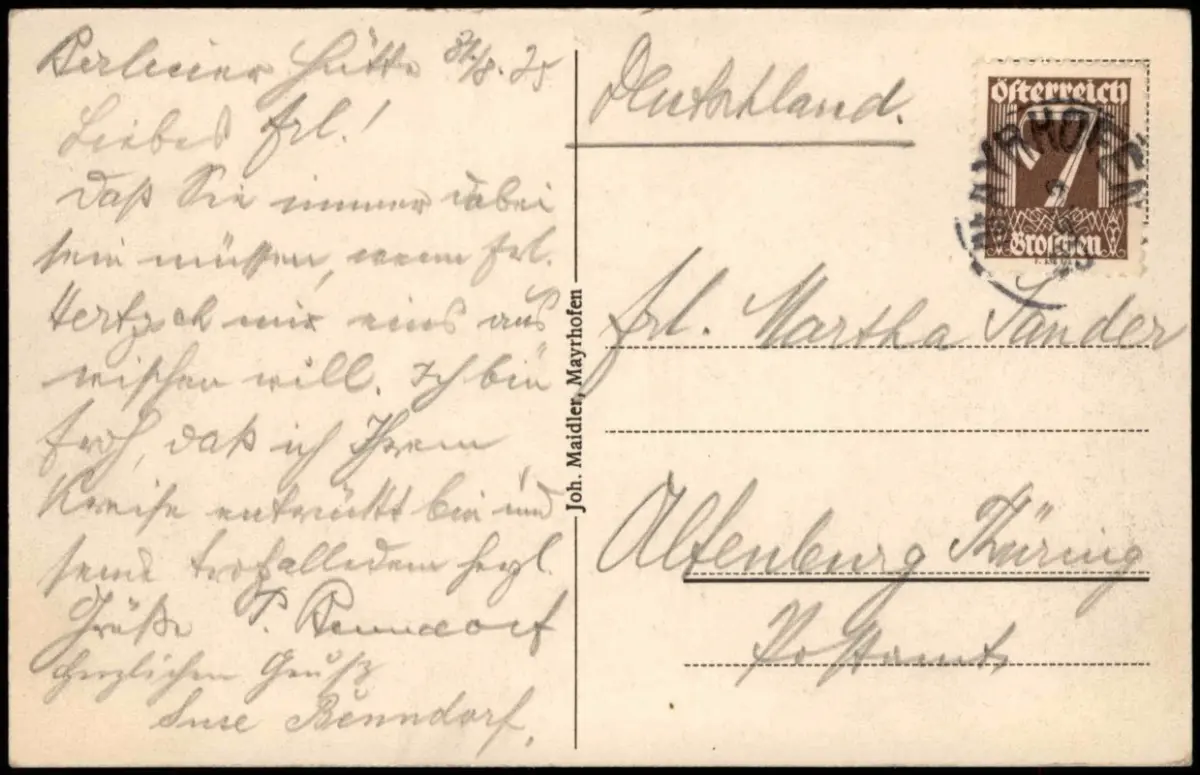 Berliner Hütte 31/8. 25
Liebes Frl.!
Daß Sie immer dabei
sein müssen, wenn Frl.
Hertzsch mir eins aus
wischen will. Ich bin
froh, daß ich Ihrem
Kreise entrückt bin und
sende trotzalledem herzl.
Grüße P. Benndorf
herzlichen Gruß
Suse Benndorf.
Joh. Maidler, Mayrhofen
Deutschland.
Österreich
7
Groschen
MAYRHOFEN
Frl. Martha Sander
Altenburg Thüring
Postamt